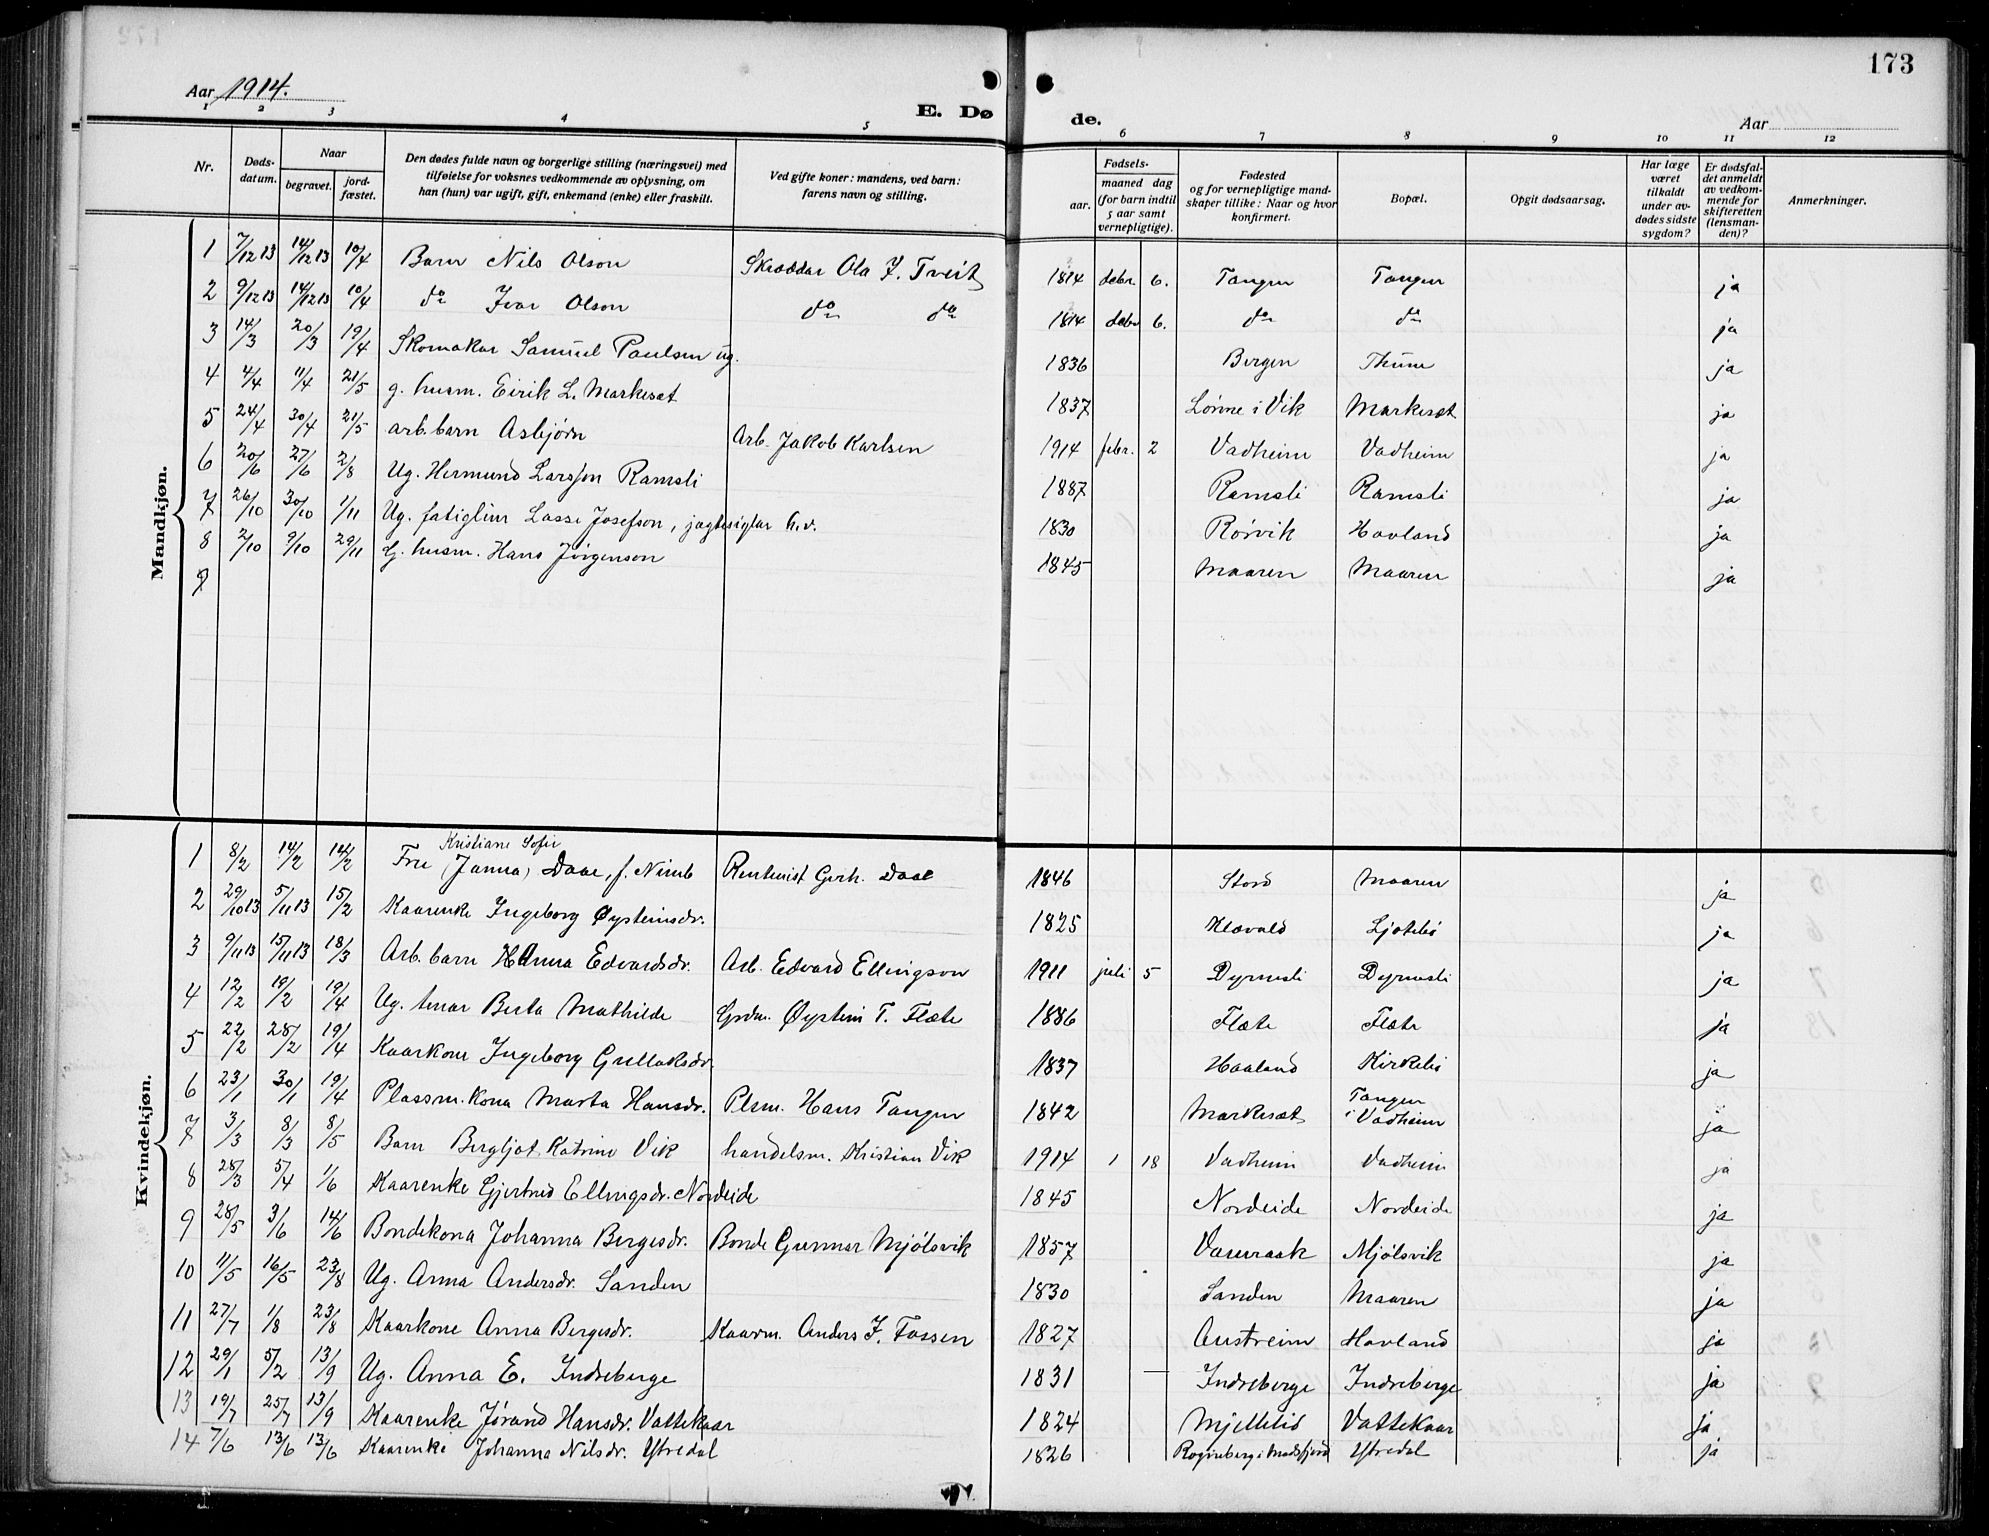 173
Aar 1914.
E. Døde.
Aar
1 2 3 4 5 6 7 8 9 10 11 12
Nr. Døds-datum. Naar begravet. jord-fæstet. Den dødes fulde navn og borgerlige stilling (næringsvei) med tilføielse for voksnes vedkommende av oplysning, om han (hun) var ugift, gift, enkemand (enke) eller fraskilt. Ved gifte koner: mandens, ved barn: farens navn og stilling. Fødsels- aar. maaned dag (for barn indtil 5 aar samt vernepligtige). Fødested og for vernepligtige mandskaper tillike: Naar og hvor konfirmert. Bopæl. Opgit dødsaarsag. Har læge været tilkaldt under avdødes sidste sygdom? Er dødsfaldet anmeldt av vedkommende for skifteretten (lensmanden)? Anmerkninger.
Mandkjøn.
1 7/12 13 14/12 13 10/4 Barn Nils Olson Skræddar Ola J. Tveit 1814 debr. 6. Tangen Tangen ja
2 9/12 13 14/12 13 10/4 do Ivar Olson do do 1814 debr 6. do do ja
3 14/3 20/3 19/4 Skomakar Samuel Paulsen ug. 1836 Bergen Thune ja
4 4/4 11/4 21/5 g. husm. Eirik L. Markeset 1837 Lønne i Vik Markesæt ja
5 24/4 30/4 21/5 arb. barn Asbjørn Arb. Jakob Karlsen 1914 febr. 2 Vadheim Vadheim ja
6 20/6 27/6 2/8 Ug. Hermund Larsson Ramsli 1887 Ramsli Ramsli ja
7 26/10 30/10 1/11 Ug. fatiglem Lasse Josefson, jagtesiglar h.v. 1830 Rørvik Hovland ja
8 2/10 9/10 29/11 G. husm. Hans Jørgenson 1845 Maaren Maaren ja
9
Kvindekjøn.
Kristiane Sofie
1 8/2 14/2 14/2 Fru (Janna) Daae, f. Nimb Rentenist Gerh. Daae 1846 Stord Maaren ja
2 29/10 13 5/11 13 15/2 Kaarenke Ingeborg Øysteinsdr. 1825 Klævold Ljotebø ja
3 9/11 13 15/11 13 18/3 Arb. barn Hanna Edvardsdr. Arb. Edvard Ellingson 1911 juli 5 Dyrnesli Dyrnesli ja
4 12/2 19/2 19/4 Ug. tenar Berta Mathilde Grdm. Øystein T. Flæte 1886 Flæte Flæte ja
5 22/2 28/2 19/4 Kaarkone Ingeborg Gullaksdr. 1837 Haaland Kirkebø ja
6 23/1 30/1 19/4 Plassm. kona Marta Hansdr. Plsm. Hans Tangen 1842 Markesæt Tangen i Vadheim ja
7 3/3 8/3 8/5 Barn Bergljot Katrine Vik handelsm. Kristian Vik 1914 1 18 Vadheim Vadheim ja
8 28/3 5/4 1/6 Kaarenke Gjertrud Ellingsdr. Nordeide 1845 Nordeide Nordeide ja
9 28/5 3/6 14/6 Bondekona Johanna Bergesdr. Bonde Gunnar Mjølsvik 1857 Varenaak Mjølsvik ja
10 11/5 16/5 23/8 Ug. Anna Andersdr. Sanden 1830 Sanden Maaren ja
11 27/7 1/8 23/8 Kaarkone Anna Bergesdr. Kaarm. Anders J. Fossen 1827 Austreim Hovland ja
12 29/1 5/2 13/9 Ug. Anna E. Indreberge 1831 Indreberge Indreberge ja
13 19/7 25/7 13/9 Kaarenke Jørand Hansdr. Vattekaar 1824 Mjellebø Vattekaar ja
14 7/6 13/6 13/6 Kaarenke Johanna Nilsdr. Ytredal 1826 Ytredal ja